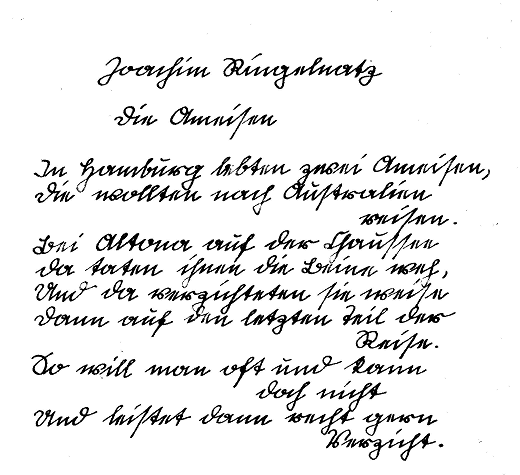 Joachim Ringelnatz
Die Ameisen
In Hamburg lebten zwei Ameisen,
die wollten nach Australien
reisen.
Bei Altona auf der Chaussee
da taten ihnen die Beine weh,
Und da verzichteten sie weise
dann auf den letzten Teil der
Reise.
So will man oft und kann
doch nicht
Und leistet dann recht gern
Verzicht.